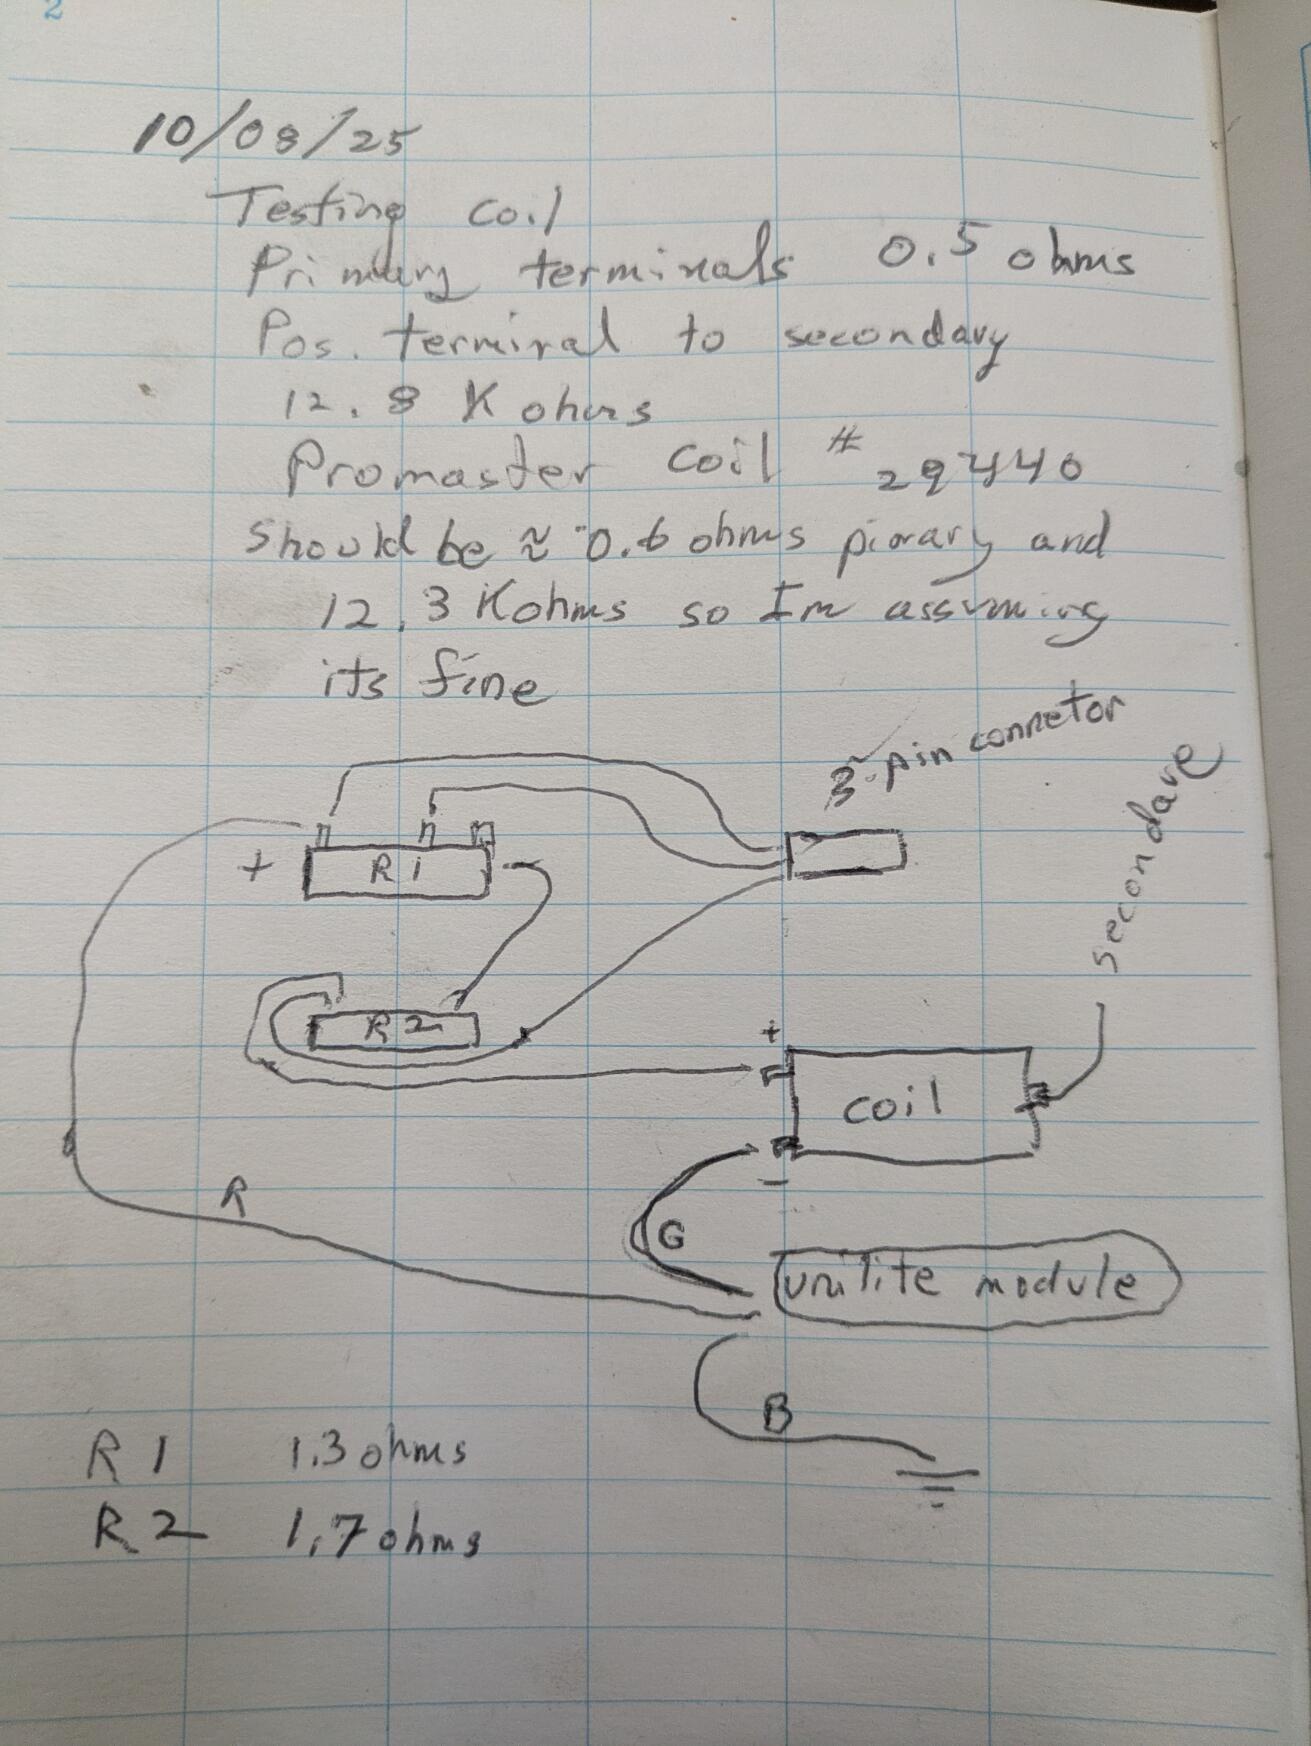 2
10/08/25
Testing coil
Primary terminals 0.5 ohms
Pos. terminal to secondary
12.8 K ohms
Promaster coil # 29440
should be ≈ 0.6 ohms pirary and
12.3 Kohms so Im assuming
its fine
3-pin connetor
secondare
+ R1
R2
+
coil
-
R
G
unilite module
B
R1 1.3 ohms
R2 1.7 ohms